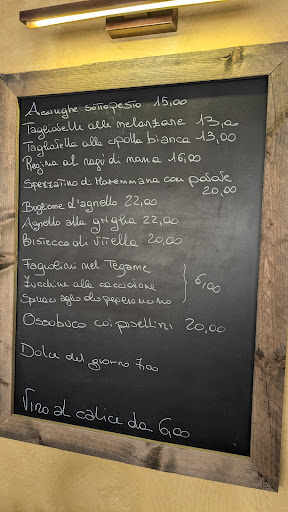 Acciughe sottopesto 15,00
Tagliatelle alle melanzane 13,00
Tagliatella alla cipolla bianca 13,00
Regina al ragù di mana 16,00
Spezzatino di Maremmana con patate
20,00
Buglione d'agnello 22,00
Agnello alla griglia 22,00
Bistecca di vitella 20,00
Fagiolini nel Tegame
Zucchine alla
Spinaci aglio olio peperoncino
6,00
Ossobuco coi pisellini 20,00
Dolce del giorno 7,00
Vino al calice da 6,00